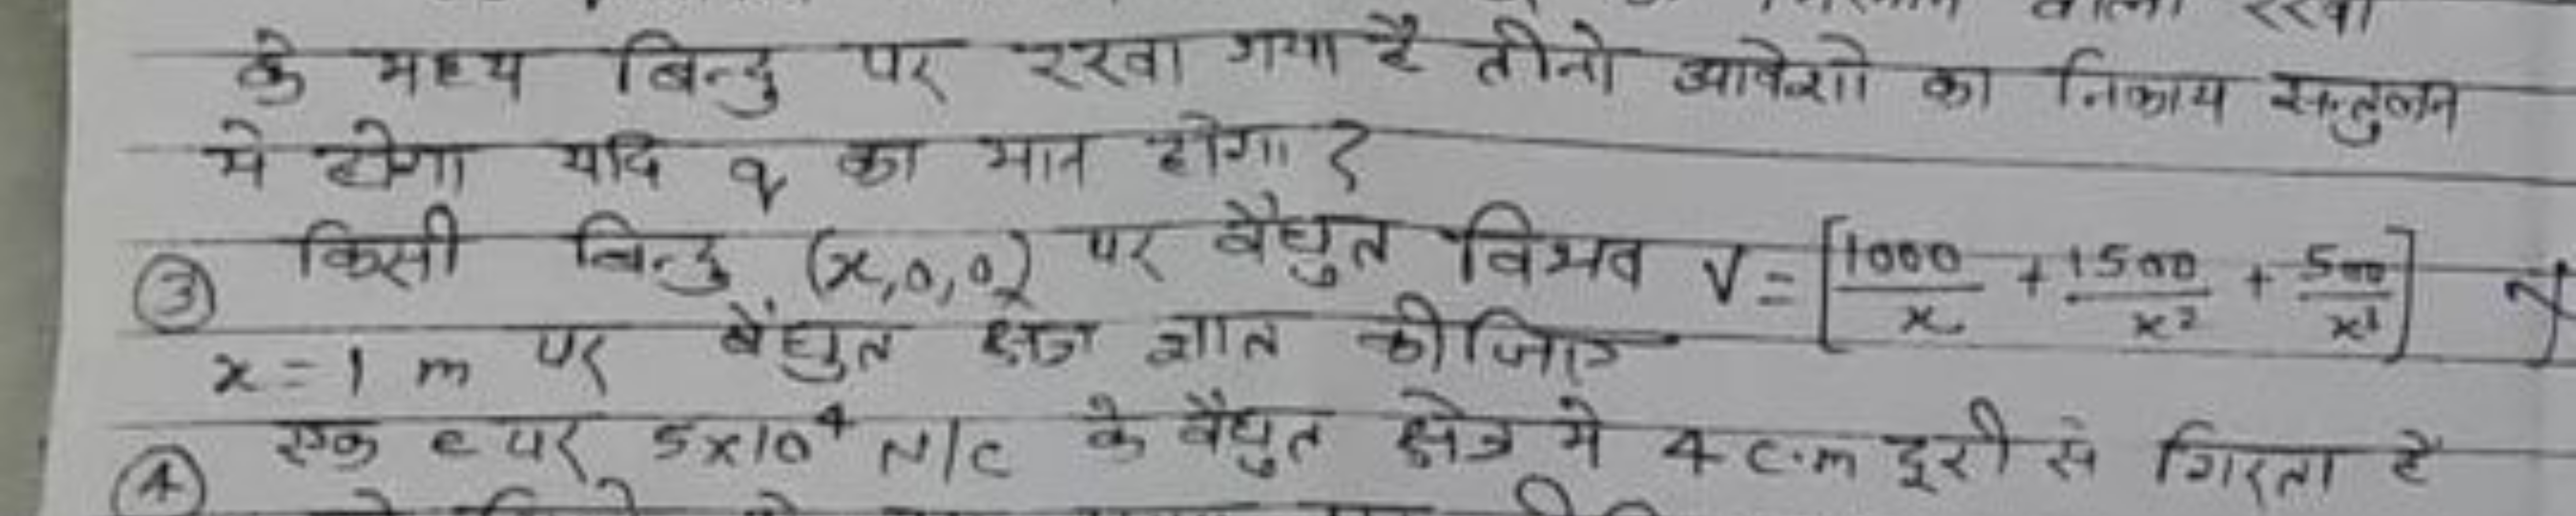 वाला रखा
के मध्य बिन्दु पर रखा गया है तीनो आवेशो का निकाय सन्तुलन
मे होगा यदि q का मान होगा ?
③ किसी बिन्दु (x,0,0) पर वैधुत विभव V = [1000/x + 1500/x² + 500/x³]
x = 1 m पर वैधुत क्षेत्र ज्ञात कीजिए
④ एक e पर 5x10⁴ N/C के वैधुत क्षेत्र मे 4 c.m दूरी से गिरता है